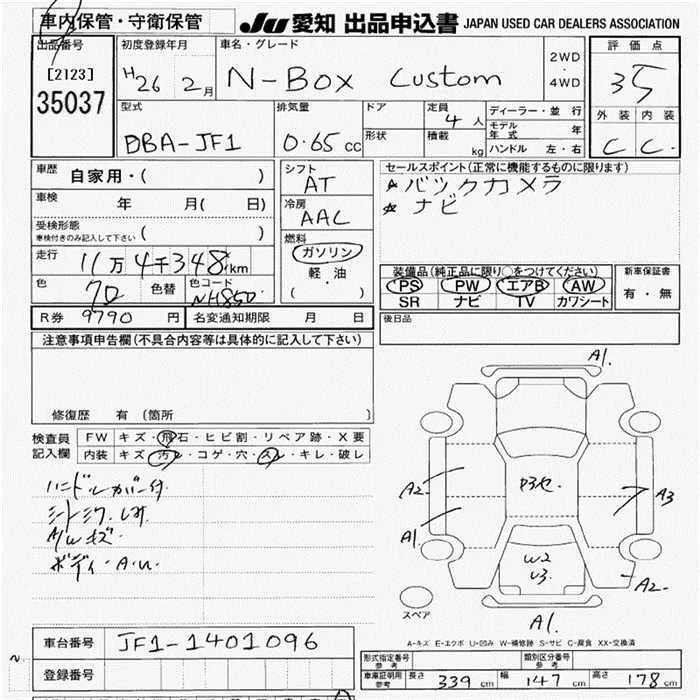 車内保管・守衛保管
JU 愛知 出品申込書 JAPAN USED CAR DEALERS ASSOCIATION
出品番号
[2123]
35037
初度登録年月
H26 2月
車名・グレード
N-Box Custom
2WD
・
4WD
評価点
35
外装 内装
C C
型式
DBA-JF1
排気量
0.65 cc
ドア
形状
定員 4人
積載 kg
ディーラー・並行
モデル年式 年
ハンドル 左・右
車歴 自家用・( )
車検 年 月( 日)
受検形態
車検付きのみ記入して下さい ( )
走行 11万4千348km
色 色替 色コード NH850
シフト
AT
冷房
AAC
燃料
ガソリン
軽・油
( )
セールスポイント(正常に機能するものに限ります)
☆ バックカメラ
☆ ナビ
装備品(純正品に限り○をつけてください)
PS PW エアB AW
SR ナビ TV カワシート
新車保証書
有・無
R券 9790 円 名変通知期限 月 日
後日品
注意事項申告欄(不具合内容等は具体的に記入して下さい)
修復歴 有 (箇所 )
検査員
記入欄
FW キズ・飛石・ヒビ割・リペア跡・X要
内装 キズ・汚レ・コゲ・穴・スレ・キレ・破レ
ハンドルカバー付
A/Wキズ
ボディ・A・U
A1
A2
A1
A3
A2
W2
U3
A1
スペア
A-キズ E-エクボ U-凹み W-補修跡 S-サビ C-腐食 XX-交換済
車台番号 JF1-1401096
登録番号
形式指定番号
参考
類別区分番号
参考
車庫証明用
参考
長さ 339 cm 幅 147 cm 高さ 178 cm